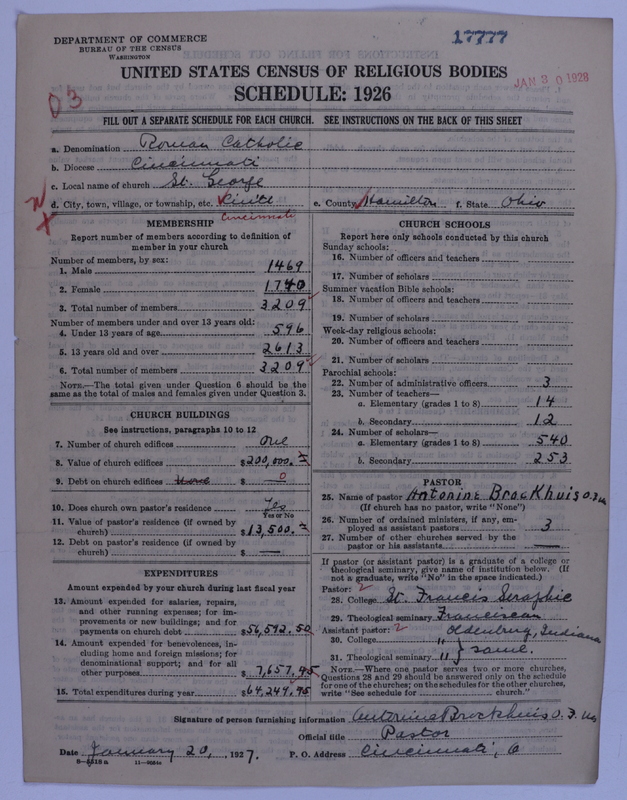 DEPARTMENT OF COMMERCE
BUREAU OF THE CENSUS
WASHINGTON
17777
UNITED STATES CENSUS OF RELIGIOUS BODIES
JAN 30 1928
SCHEDULE: 1926
03
FILL OUT A SEPARATE SCHEDULE FOR EACH CHURCH. SEE INSTRUCTIONS ON THE BACK OF THIS SHEET
a. Denomination Roman Catholic
b. Diocese Cincinnati
c. Local name of church St. George
d. City, town, village, or township, etc. Cincinnati e. County Hamilton f. State Ohio
MEMBERSHIP
Report number of members according to definition of member in your church
Number of members, by sex:
1. Male 1469
2. Female 1740
3. Total number of members 3209
Number of members under and over 13 years old:
4. Under 13 years of age 596
5. 13 years old and over 2613
6. Total number of members 3209
NOTE.—The total given under Question 6 should be the
same as the total of males and females given under Question 3.
CHURCH BUILDINGS
See instructions, paragraphs 10 to 12
7. Number of church edifices one
8. Value of church edifices $200,000.
9. Debt on church edifices $ — 0
10. Does church own pastor's residence? Yes
Yes or No
11. Value of pastor's residence (if owned by
church) $13,500.
12. Debt on pastor's residence (if owned by
church) $ —
EXPENDITURES
Amount expended by your church during last fiscal year
13. Amount expended for salaries, repairs,
and other running expenses; for im-
provements or new buildings; and for
payments on church debt $56,592.50
14. Amount expended for benevolences, in-
cluding home and foreign missions; for
denominational support; and for all
other purposes $7,657.45
15. Total expenditures during year $64,249.95
CHURCH SCHOOLS
Report here only schools conducted by this church
Sunday schools:
16. Number of officers and teachers
17. Number of scholars
Summer vacation Bible schools:
18. Number of officers and teachers
19. Number of scholars
Week-day religious schools:
20. Number of officers and teachers
21. Number of scholars
Parochial schools:
22. Number of administrative officers 3
23. Number of teachers—
a. Elementary (grades 1 to 8) 14
b. Secondary 12
24. Number of scholars—
a. Elementary (grades 1 to 8) 540
b. Secondary 253
PASTOR
25. Name of pastor Antonine Brockhuis O.F.M.
(If church has no pastor, write "None")
26. Number of ordained ministers, if any, em-
ployed as assistant pastors 3
27. Number of other churches served by the
pastor or his assistants —
If pastor (or assistant pastor) is a graduate of a college or
theological seminary, give name of institution below. (If
not a graduate, write "No" in the space indicated.)
Pastor: 2
28. College St. Francis Seraphic
29. Theological seminary Franciscan
Assistant pastor: 2 Oldenburg, Indiana
30. College "
31. Theological seminary " } same.
NOTE.—Where one pastor serves two or more churches,
Questions 28 and 29 should be answered only on the schedule
for one of the churches; on the schedules for the other churches,
write "See schedule for church."
Signature of person furnishing information Antonine Brockhuis O.F.M.
Official title Pastor
Date January 20, 1927. P. O. Address Cincinnati, O